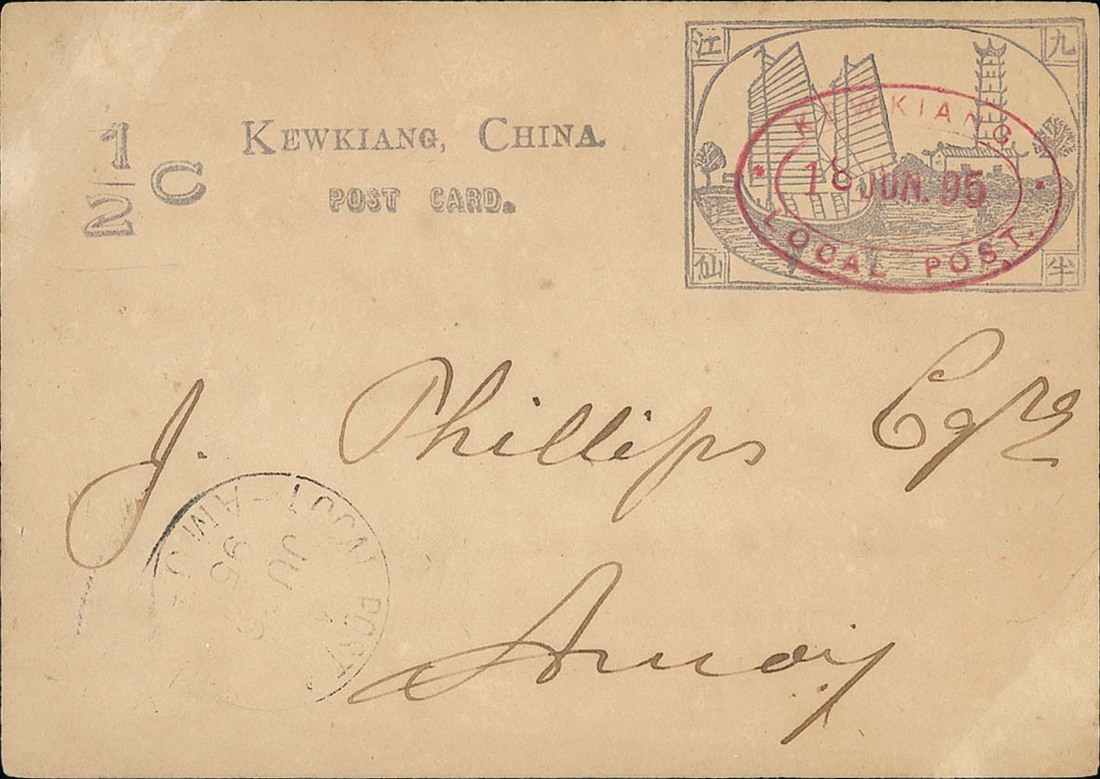 九江
半仙
1/2 C
KEWKIANG, CHINA.
POST CARD.
KEWKIANG
18 JUN. 95
LOCAL POST.
J. Phillips Esqre
Amoy
AMOY LOCAL POST
95